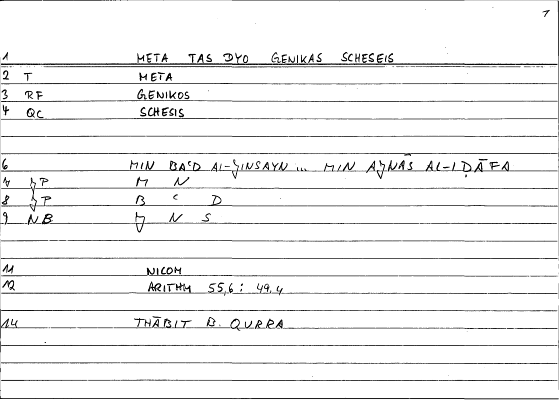 1
1 META TAS DYO GENIKAS SCHESEIS
2 T META
3 RF GENIKOS
4 QC SCHESIS
6 MIN BAᶜD AL-ǦINSAYN ... MIN AǦNĀS AL-IḌĀFA
7 ǦP M N
8 ǦP B ᶜ D
9 NB Ǧ N S
11 NICOM
12 ARITHM 55,6 : 49,4
14 THĀBIT B. QURRA